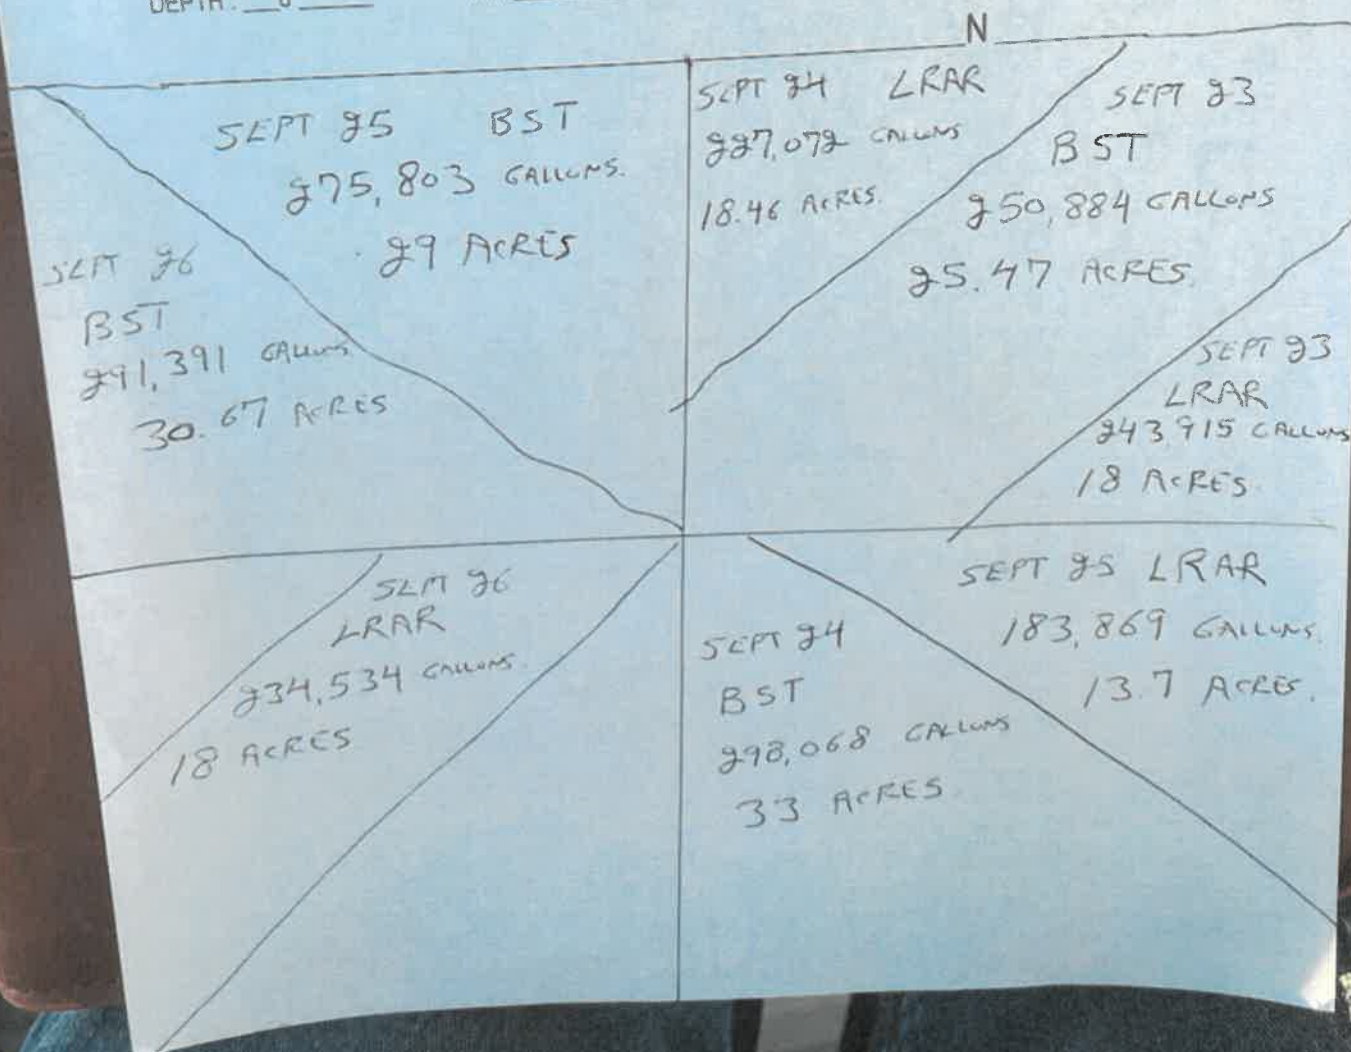 DEPTH: 8
N
SEPT 25 BST
275,803 GALLONS.
29 ACRES
SEPT 24 LRAR
227,072 GALLONS
18.46 ACRES.
SEPT 23
BST
250,884 GALLONS
25.47 ACRES.
SEPT 26
BST
291,391 GALLONS
30.67 ACRES
SEPT 23
LRAR
243,915 GALLONS
18 ACRES.
SEPT 26
LRAR
234,534 GALLONS.
18 ACRES
SEPT 24
BST
298,068 GALLONS
33 ACRES.
SEPT 25 LRAR
183,869 GALLONS.
13.7 ACRES.